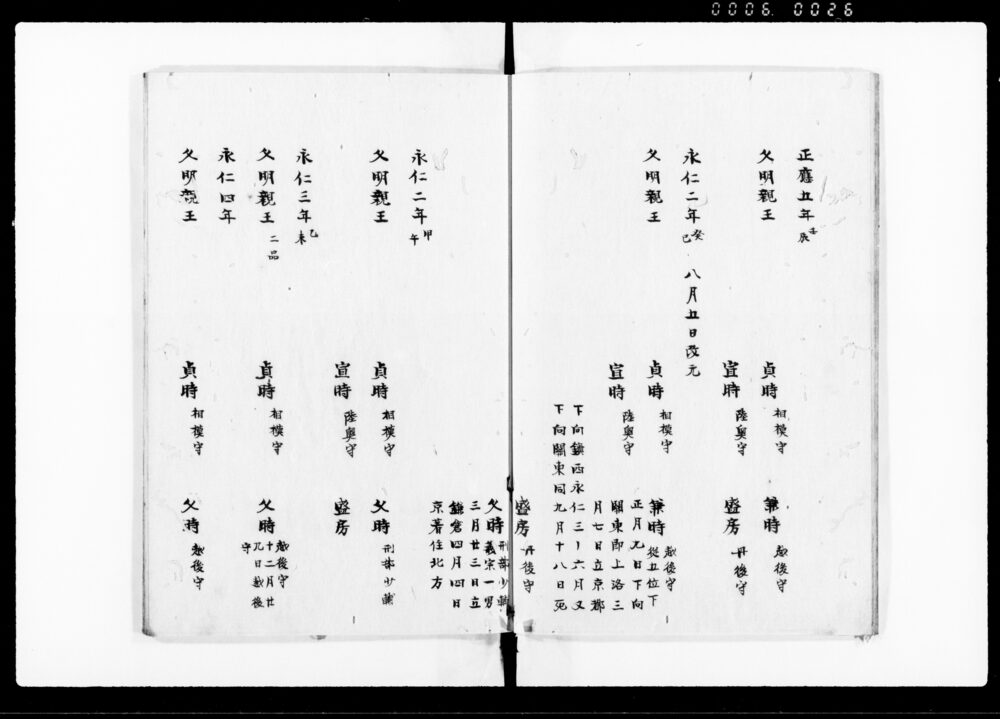 0006 0026
正應五年 壬辰
久明親王
貞時 相模守
兼時 越後守
宣時 陸奥守
盛房 丹後守
永仁二年 癸巳 八月五日改元
久明親王
貞時 相模守
兼時 越後守
從五位下
正月九日下向
關東即上洛三
月七日立京都
下向鎮西永仁三ー六月又
下向關東同九月十八日死
宣時 陸奥守
盛房 丹後守
久時 刑部少輔
義宗一男
三月廿三日立
鎌倉四月四日
京着住北方
永仁二年 甲午
久明親王
貞時 相模守
久時 刑部少輔
宣時 陸奥守
盛房
永仁三年 乙未
久明親王 二品
貞時 相模守
久時 越後守
十二月廿
九日越後
守
永仁四年
久明親王
貞時 相模守
久時 越後守